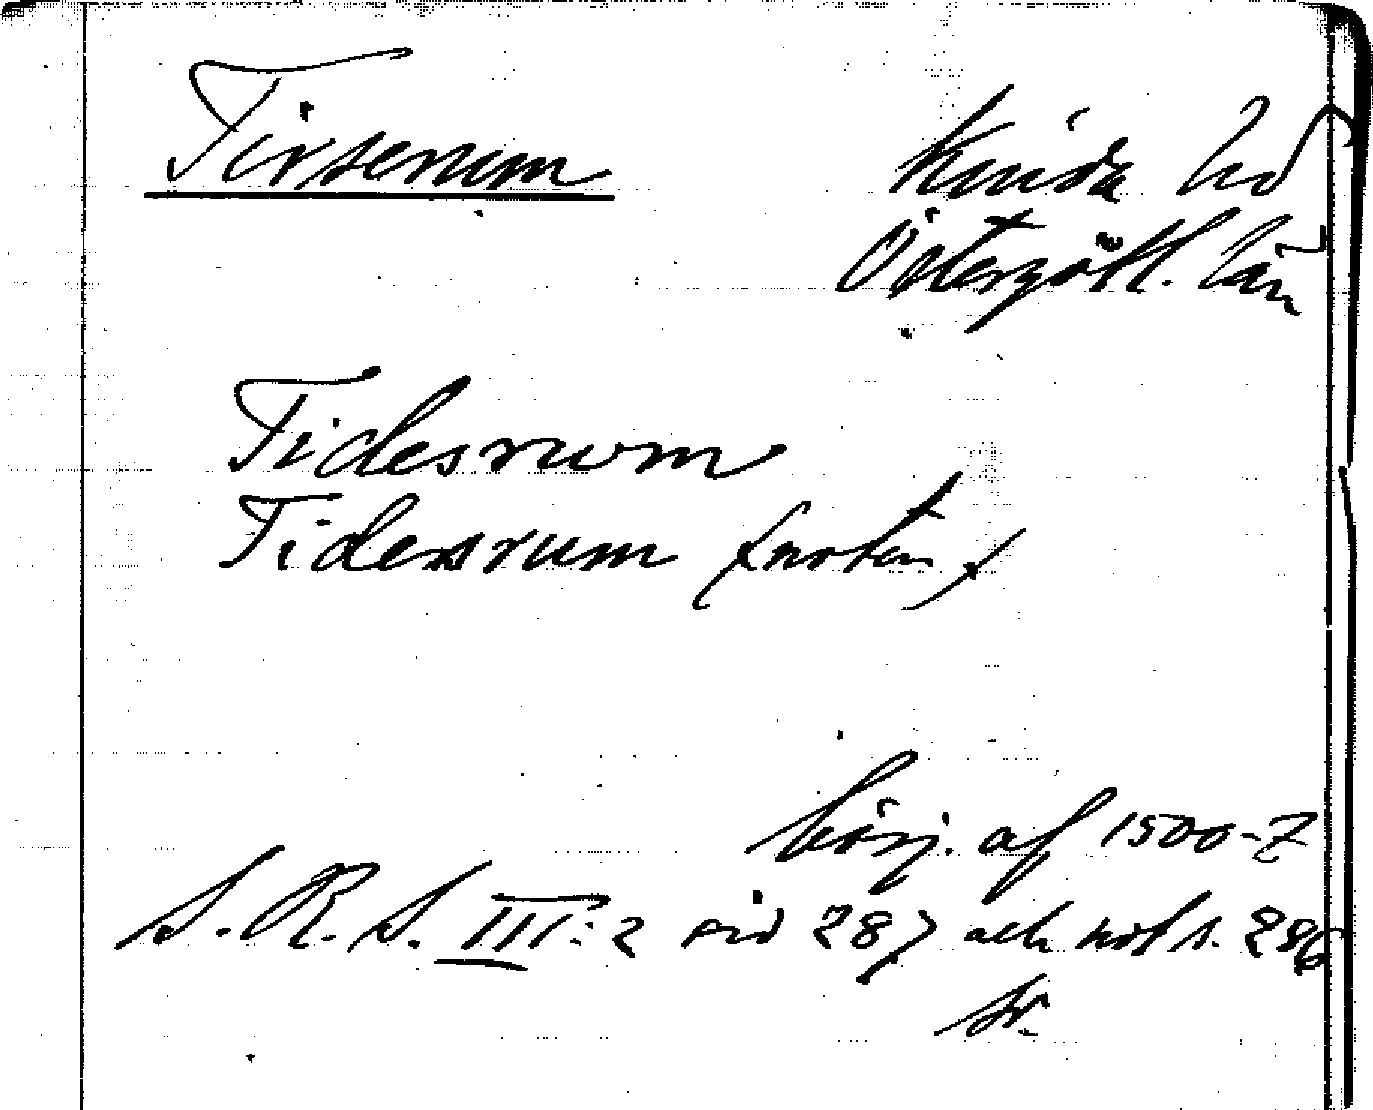 Tirserum
Kinda hd
Östergötl. län
Tidesrum
Tidersrum (noten)
börj. af 1500-t
S.R.S. III:2 sid 287 och not s. 286